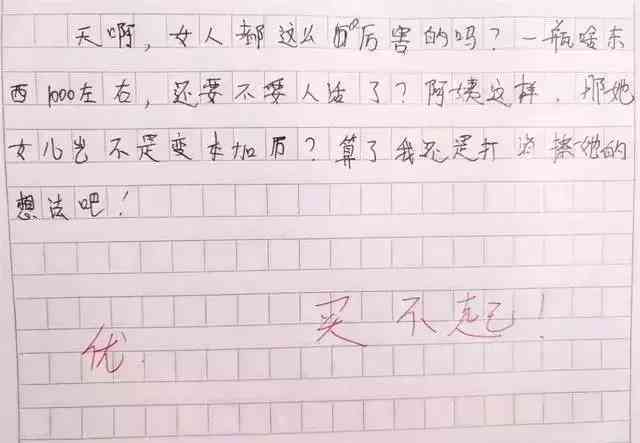 天啊，女人都这么厉害的吗？一瓶啥东
西1000左右，还要不要人活了？阿姨这样，那她
女儿岂不是变本加厉？算了我还是打消撩她的
想法吧！
买不起！
优